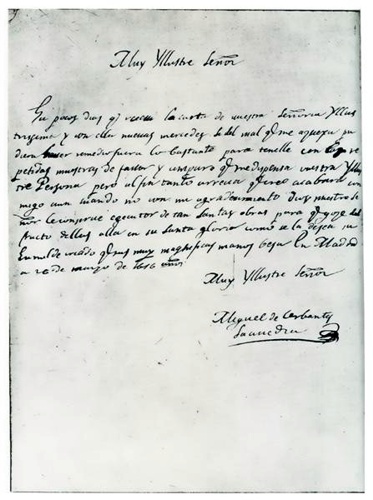 Muy Yllustre Señor
Ha pocos dias q receui la carta de vuestra Señoria Yllus
trissima y con ella nueuas mercedes si del mal q me aquexa pu
diera hauer remedio fuera lo bastante para tenelle con las re
petidas muestras de fauor y amparo q me dispensa vuestra Yllus
tre Persona pero al fin tanto arrecia q creo acabara con
migo aun quando no con mi agradecimiento dios nuestro se
ñor le conserue egecutor de tan santas obras para q goze del
fructo dellas alla en su santa gloria como se la desea su
humilde criado q sus muy magnificas manos besa En Madrid
a 26 de março de 1616 años
Muy Yllustre Señor
Miguel de Cerbantes
Saauedra